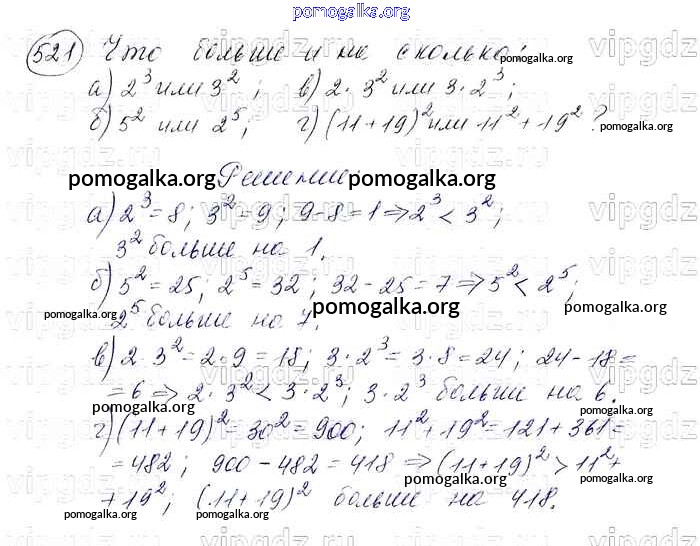 pomogalka.org
521 Что больше и на сколько:
pomogalka.org
а) 2³ или 3² ; в) 2 · 3² или 3 · 2³;
б) 5² или 2⁵; г) (11+19)² или 11² + 19² ?
pomogalka.org
pomogalka.org Решение. pomogalka.org
а) 2³ = 8; 3² = 9; 9 - 8 = 1 ⇒ 2³ < 3²;
3² больше на 1.
б) 5² = 25; 2⁵ = 32; 32 - 25 = 7 ⇒ 5² < 2⁵;
pomogalka.org pomogalka.org pomogalka.org
2⁵ больше на 7.
в) 2 · 3² = 2 · 9 = 18; 3 · 2³ = 3 · 8 = 24; 24 - 18 =
= 6 ⇒ 2 · 3² < 3 · 2³; 3 · 2³ больше на 6.
pomogalka.org pomogalka.org
г) (11+19)² = 30² = 900; 11² + 19² = 121 + 361 =
= 482; 900 - 482 = 418 ⇒ (11+19)² > 11² +
+ 19²; (11+19)² больше на 418.
pomogalka.org pomogalka.org pomogalka.org